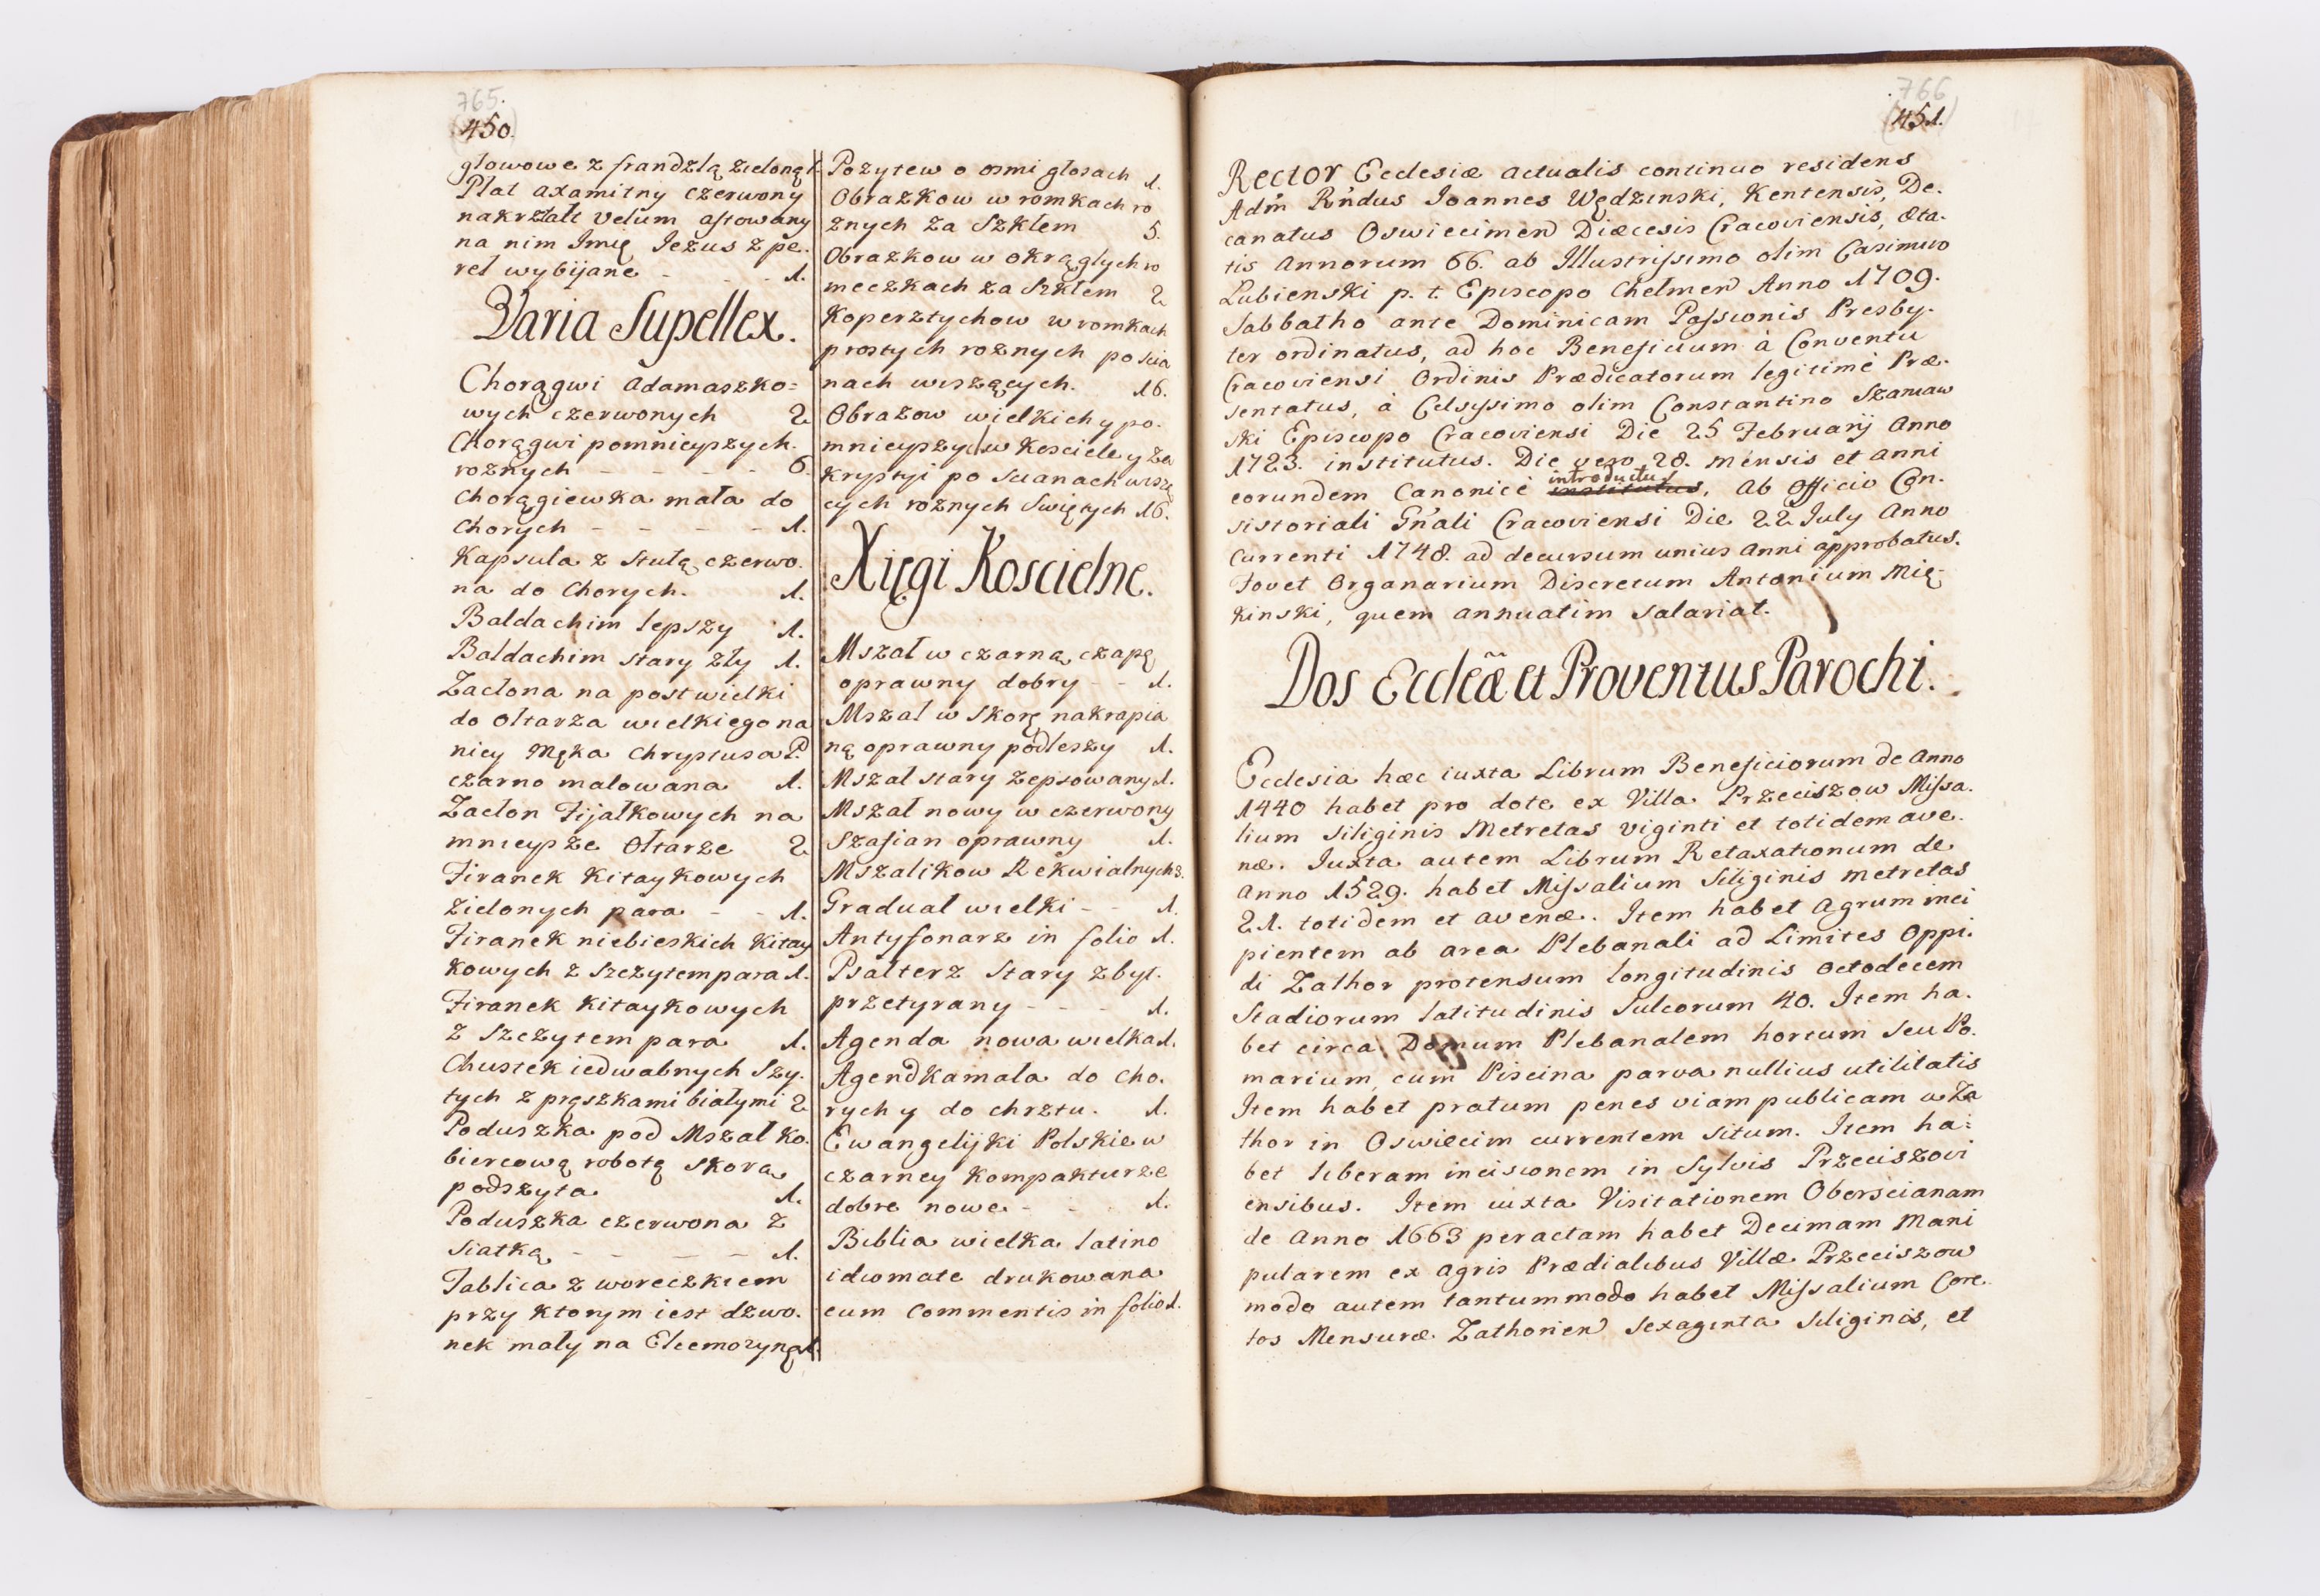 765.
450.
głowowe z frandzlą zieloną 1.
Płat axamitny czerwony
nakrztałt Velum aftowany
na nim Imię Jezus z pe.
reł wybijane - - - 1.
Varia Supellex.
Chorągwi adamaszko=
wych czerwonych 2
Chorągwi pomnieyszych.
roznych - - - - - 6.
Chorągiewka mała do
Chorych - - - - - 1.
Kapsula z stułą czerwo.
na do Chorych. 1.
Baldachim lepszy 1.
Baldachim stary zły 1.
Zaclona na post wielki
do Ołtarza wielkiego na
niey Męka Chrystusa P.
czarno malowana 1.
Zaclon Fijałkowych na
mnieysze Ołtarze 2
Firanek Kitaykowych
Zielonych para - - 1.
Firanek niebieskich Kitay
kowych z szczytem para 1.
Firanek Kitaykowych
z szczytem para 1.
Chustek iedwabnych Szy.
tych z pręszkami białymi 2
Poduszka pod Mszał Ko.
biercową robotą skorą
podszyta 1.
Poduszka czerwona z
siatką - - - - 1.
Tablica z woreczkiem
przy ktorym iest dzwo.
nek mały na Eleemozyną 1.
Pozytew o osmi głosach 1.
Obrazkow w romkach ro
znych za Szkłem 5.
Obrazkow w okrągłych ro
meczkach za Szkłem 2
Koperztychow w romkach
prostych roznych po scia
nach wiszących. 16.
Obrazow wielkich y po.
mnieyszych w Kosciele y Za
Krystyi po Scianach wiszą
cych roznych Swiętych 16.
Xięgi Koscielne.
Mszał w czarną czapę
oprawny dobry - - 1.
Mszał w Skorę nakrapia
ną oprawny podleszy 1.
Mszał stary zepsowany 1.
Mszał nowy w czerwony
Szafian oprawny 1.
Mszalikow Rekwialnych 3.
Graduał wielki - - 1.
Antyfonarz in folio 1.
Psałterz Stary zbyt.
przetyrany - - - 1.
Agenda nowa wielka 1.
Agendka mała do Cho.
rych y do chrztu. 1.
Ewangelijki Polskie w
czarney Kompakturze
dobre nowe - - - 1.
Biblia wielka latino
idiomate drukowana
cum Commentis in folio 1.
766
451.
Rector Ecclesiæ actualis continuo residens
Adm̃ Rñdus Joannes Wędzinski, Kentensis, De.
canatus Oswiecimen Diæcesis Cracoviensis, æta.
tis Annorum 66. ab Illustrissimo olim Casimiro
Lubienski p. t. Episcopo Chelmen Anno 1709.
Sabbatho ante Dominicam Passionis Presby.
ter ordinatus, ad hoc Beneficium à Conventu
Cracoviensi Ordinis Prædicatorum legitimè Præ.
sentatus, à Celsissimo olim Constantino Szaniaw
ski Episcopo Cracoviensi Die 25 Februarij Anno
1723. institutus. Die vero 28. mensis et anni
eorundem Canonicè introductus institutus, ab Officio Con.
sistoriali Gñali Cracoviensi Die 22 July Anno
Currenti 1748. ad decursum unius Anni approbatus.
Fovet Organarium Discretum Antonium Mię
kinski, quem annuatim salariat.
Dos Eccleæ et Proventus Parochi.
Ecclesia hæc iuxta Librum Beneficiorum de Anno
1440 habet pro dote ex Villa Przeciszow Missa.
lium siliginis Metretas viginti et totidem ave.
næ. Iuxta autem Librum Retaxationum de
Anno 1529. habet Missalium Siliginis metretas
21. totidem et avenæ. Item habet Agrum inci
pientem ab area Plebanali ad Limites Oppi.
di Zathor protensum longitudinis octodecem
Stadiorum latitudinis Sulcorum 40. Item ha.
bet circa Domum Plebanalem hortum seu Po.
marium, cum Piscina parva nullius utilitatis
Item habet pratum penes viam publicam a Za
thor in Oswiecim currentem situm. Item ha=
bet liberam incisionem in Sylvis Przeciszovi
ensibus. Item iuxta Visitationem Oborscianam
de Anno 1663 peractam habet Decimam Mani
pularem ex agris Prædialibus Villæ Przeciszow
modo autem tantummodo habet Missalium Core.
tos Mensuræ Zathorien sexaginta siliginis, et